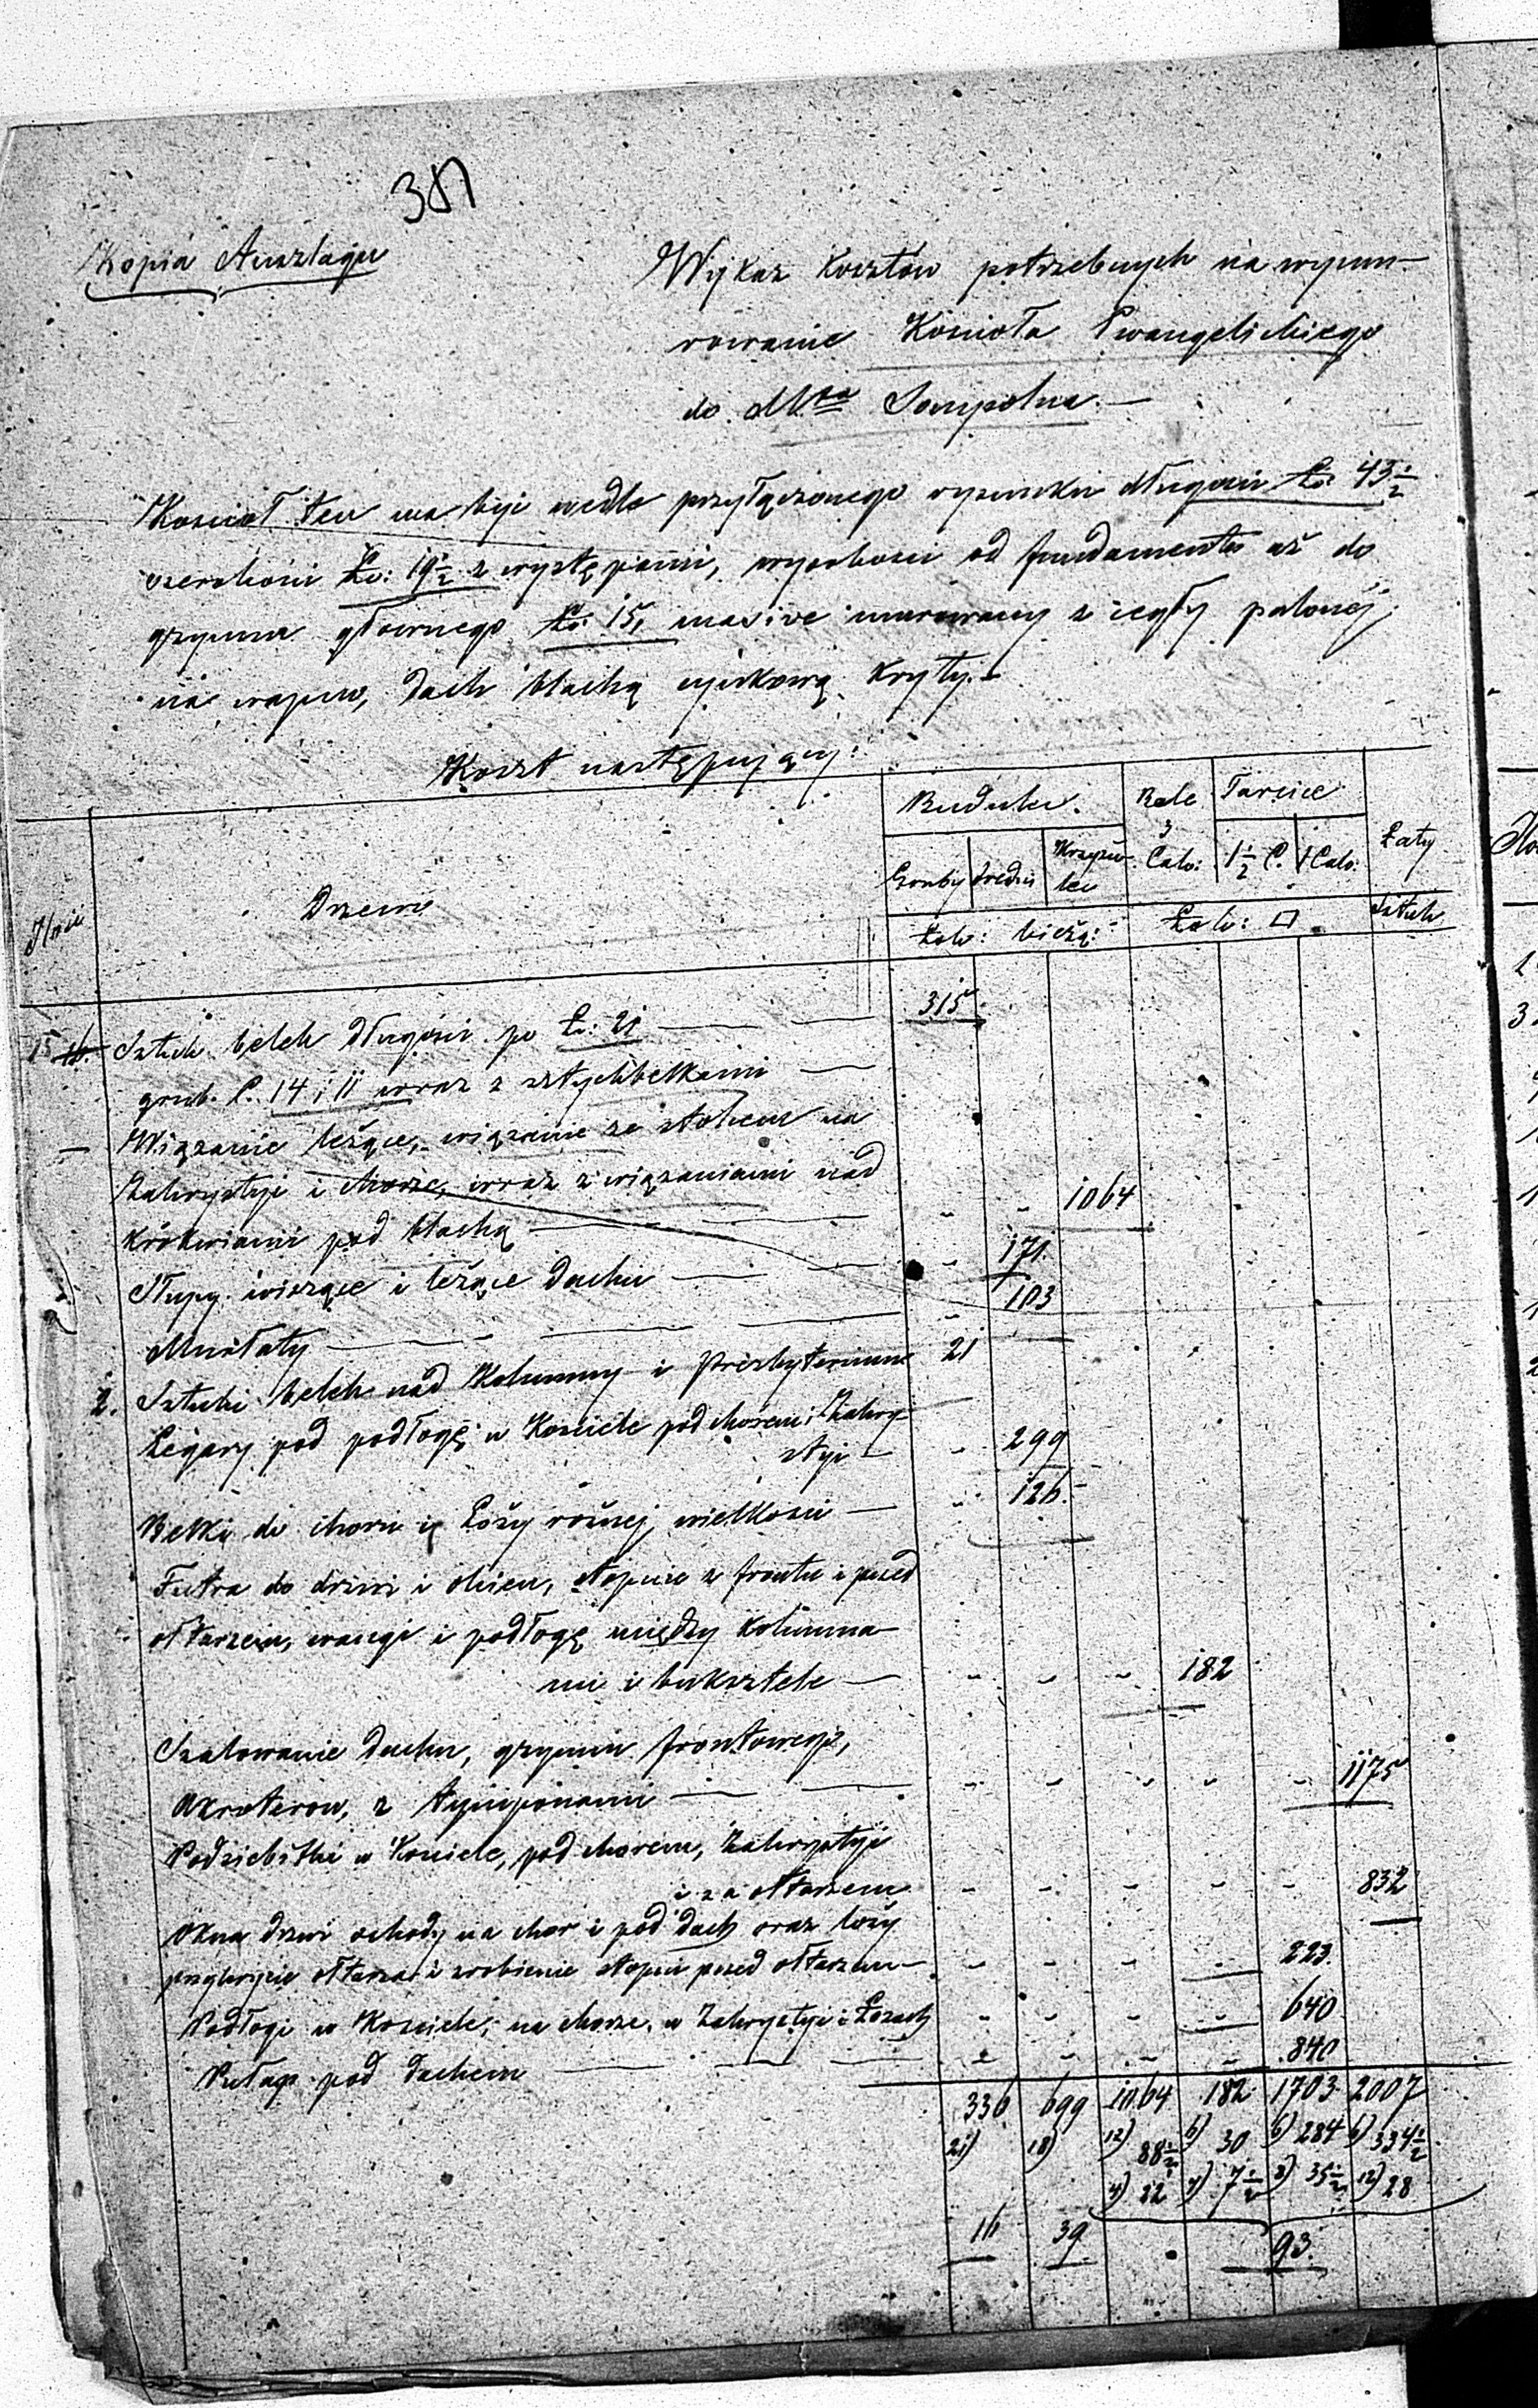 381
Kopia Anszlagu
Wykaz kosztów potrzebnych na wymu-
rowanie Kościoła Ewangelickiego
do Mta Sompolna.—
Kościoł ten ma być wedle przyłączonego rysunku długości Ło: 43½
szerokości Ło: 19½ z występami, wysokości od fundamentu aż do
gzymsu głównego Ło: 15, masive murowany z cegły palonéj
na wapno, dach blachą cynkową kryty.—
Koszt następujący:
Ilość
Drzewo
Budulcu.
Bale
3
Calo:
Tarcice
Łaty
Gruby
średni
Krzyżu-
lcu
1½ C.
1 Calo:
Łok: bieżą:
Łok: □
Sztuk
15 16. Sztuk belek długości po Ło: 21 — 315
grub. C. 14 i 11 wraz z sztychbelkami —
— Wiązanie leżące, wiązanie ze stolcem na
Zakrystyi i chorze, wraz z wiązaniami nad
krokwiami pod blachą — " " 1064
Słupy wiszące i leżące dachu — " 171.
Murłaty — " 103
2. Sztuki belek nad Kolumny i Presbyterium 21
Legary pod podłogę w Kościele pod chorem i Zakry-
styi — " 299
Belki do choru i Łoży różnej wielkości — " 126.
Futra do drzwi i okien, stopnie z frontu i przed
ołtarzem, wangi i podłogę między kolumna-
mi i buksztele — " " " 182
Szalowanie dachu, gzymsu frontowego,
Akroterow, z tymponami — " " " " " 1175
Podsiebitki w Kościele, pod chorem, Zakrystyi
i za ołtarzem " " " " " 832
Okna drzwi schody na chor i pod dach oraz loży
przykrycie ołtarza i zrobienie stopni przed ołtarzem — " " " " 223.
Podłogi w Kościele, na chorze, w Zakrystyi i Łożach " " " " 640
Pułap pod dachem — " " " " 840
336 699 1064 182 1703 2007
21) 18) 12) 88½ 6) 30 6) 284 6) 334½
4) 22 4) 7½ 8) 35½ 12) 28
16 39 93.